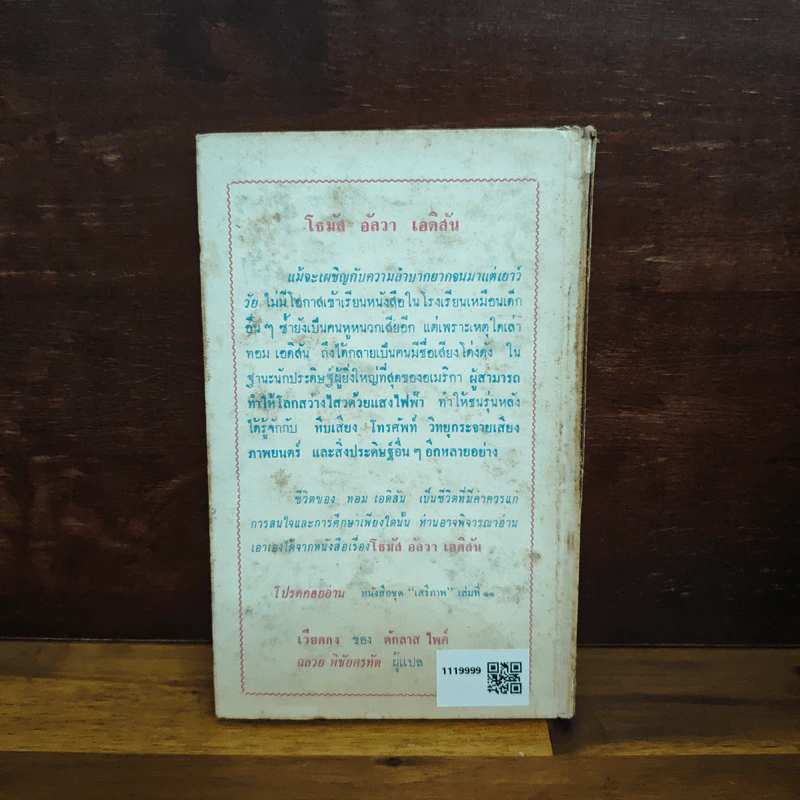 โธมัส อัลวา เอดิสัน
แม้จะเผชิญกับความลำบากยากจนมาแต่เยาว์
วัย ไม่มีโอกาสเข้าเรียนหนังสือในโรงเรียนเหมือนเด็ก
อื่น ๆ ซ้ำยังเป็นคนหูหนวกเสียอีก แต่เพราะเหตุใดเล่า
ทอม เอดิสัน ถึงได้กลายเป็นคนมีชื่อเสียงโด่งดัง ใน
ฐานะนักประดิษฐ์ผู้ยิ่งใหญ่ที่สุดของอเมริกา ผู้สามารถ
ทำให้โลกสว่างไสวด้วยแสงไฟฟ้า ทำให้ชนรุ่นหลัง
ได้รู้จักกับ หีบเสียง โทรศัพท์ วิทยุกระจายเสียง
ภาพยนตร์ และสิ่งประดิษฐ์อื่น ๆ อีกหลายอย่าง
ชีวิตของ ทอม เอดิสัน เป็นชีวิตที่มีค่าควรแก่
การสนใจและการศึกษาเพียงใดนั้น ท่านอาจพิจารณาอ่าน
เอาเองได้จากหนังสือเรื่องโธมัส อัลวา เอดิสัน
โปรดคอยอ่าน หนังสือชุด "เสรีภาพ" เล่มที่ ๑๑
เวียดกง ของ ดักลาส ไพค์
ฉลวย พิชัยศรทัต ผู้แปล
1119999